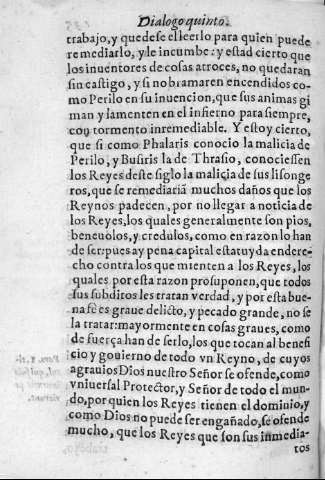 Dialogo quinto.
trabajo, y quedese el leerlo para quien puede
remediarlo, y le incumbe: y estad cierto que
los inuentores de cosas atroces, no quedaran
sin castigo, y si no bramaren encendidos co-
mo Perilo en su inuencion, que sus animas gi
man y lamenten en el infierno para siempre,
con tormento inremediable. Y estoy cierto,
que si como Phalaris conocio la malicia de
Perilo, y Busiris la de Thrasio, conociessen
los Reyes deste siglo la malicia de sus lisonge
ros, que se remediariã muchos daños que los
Reynos padecen, por no llegar a noticia de
los Reyes, los quales generalmente son pios,
beneuolos, y credulos, como en razon lo han
de ser: pues ay pena capital estatuyda en dere-
cho contra los que mienten a los Reyes, los
quales por esta razon prosuponen, que todos
sus subditos les tratan verdad, y por esta bue-
na fe es graue delicto, y pecado grande, no se
la tratar: mayormente en cosas graues, como
de fuerça han de ser lo, los que tocan al benefi
cio y gouierno de todo vn Reyno, de cuyos
agrauios Dios nuestro Señor se ofende, como
vniuersal Protector, y Señor de todo el mun-
do, por quien los Reyes tienen el dominio, y
como Dios no puede ser engañado, se ofende
mucho, que los Reyes que son sus inmedia-
tos